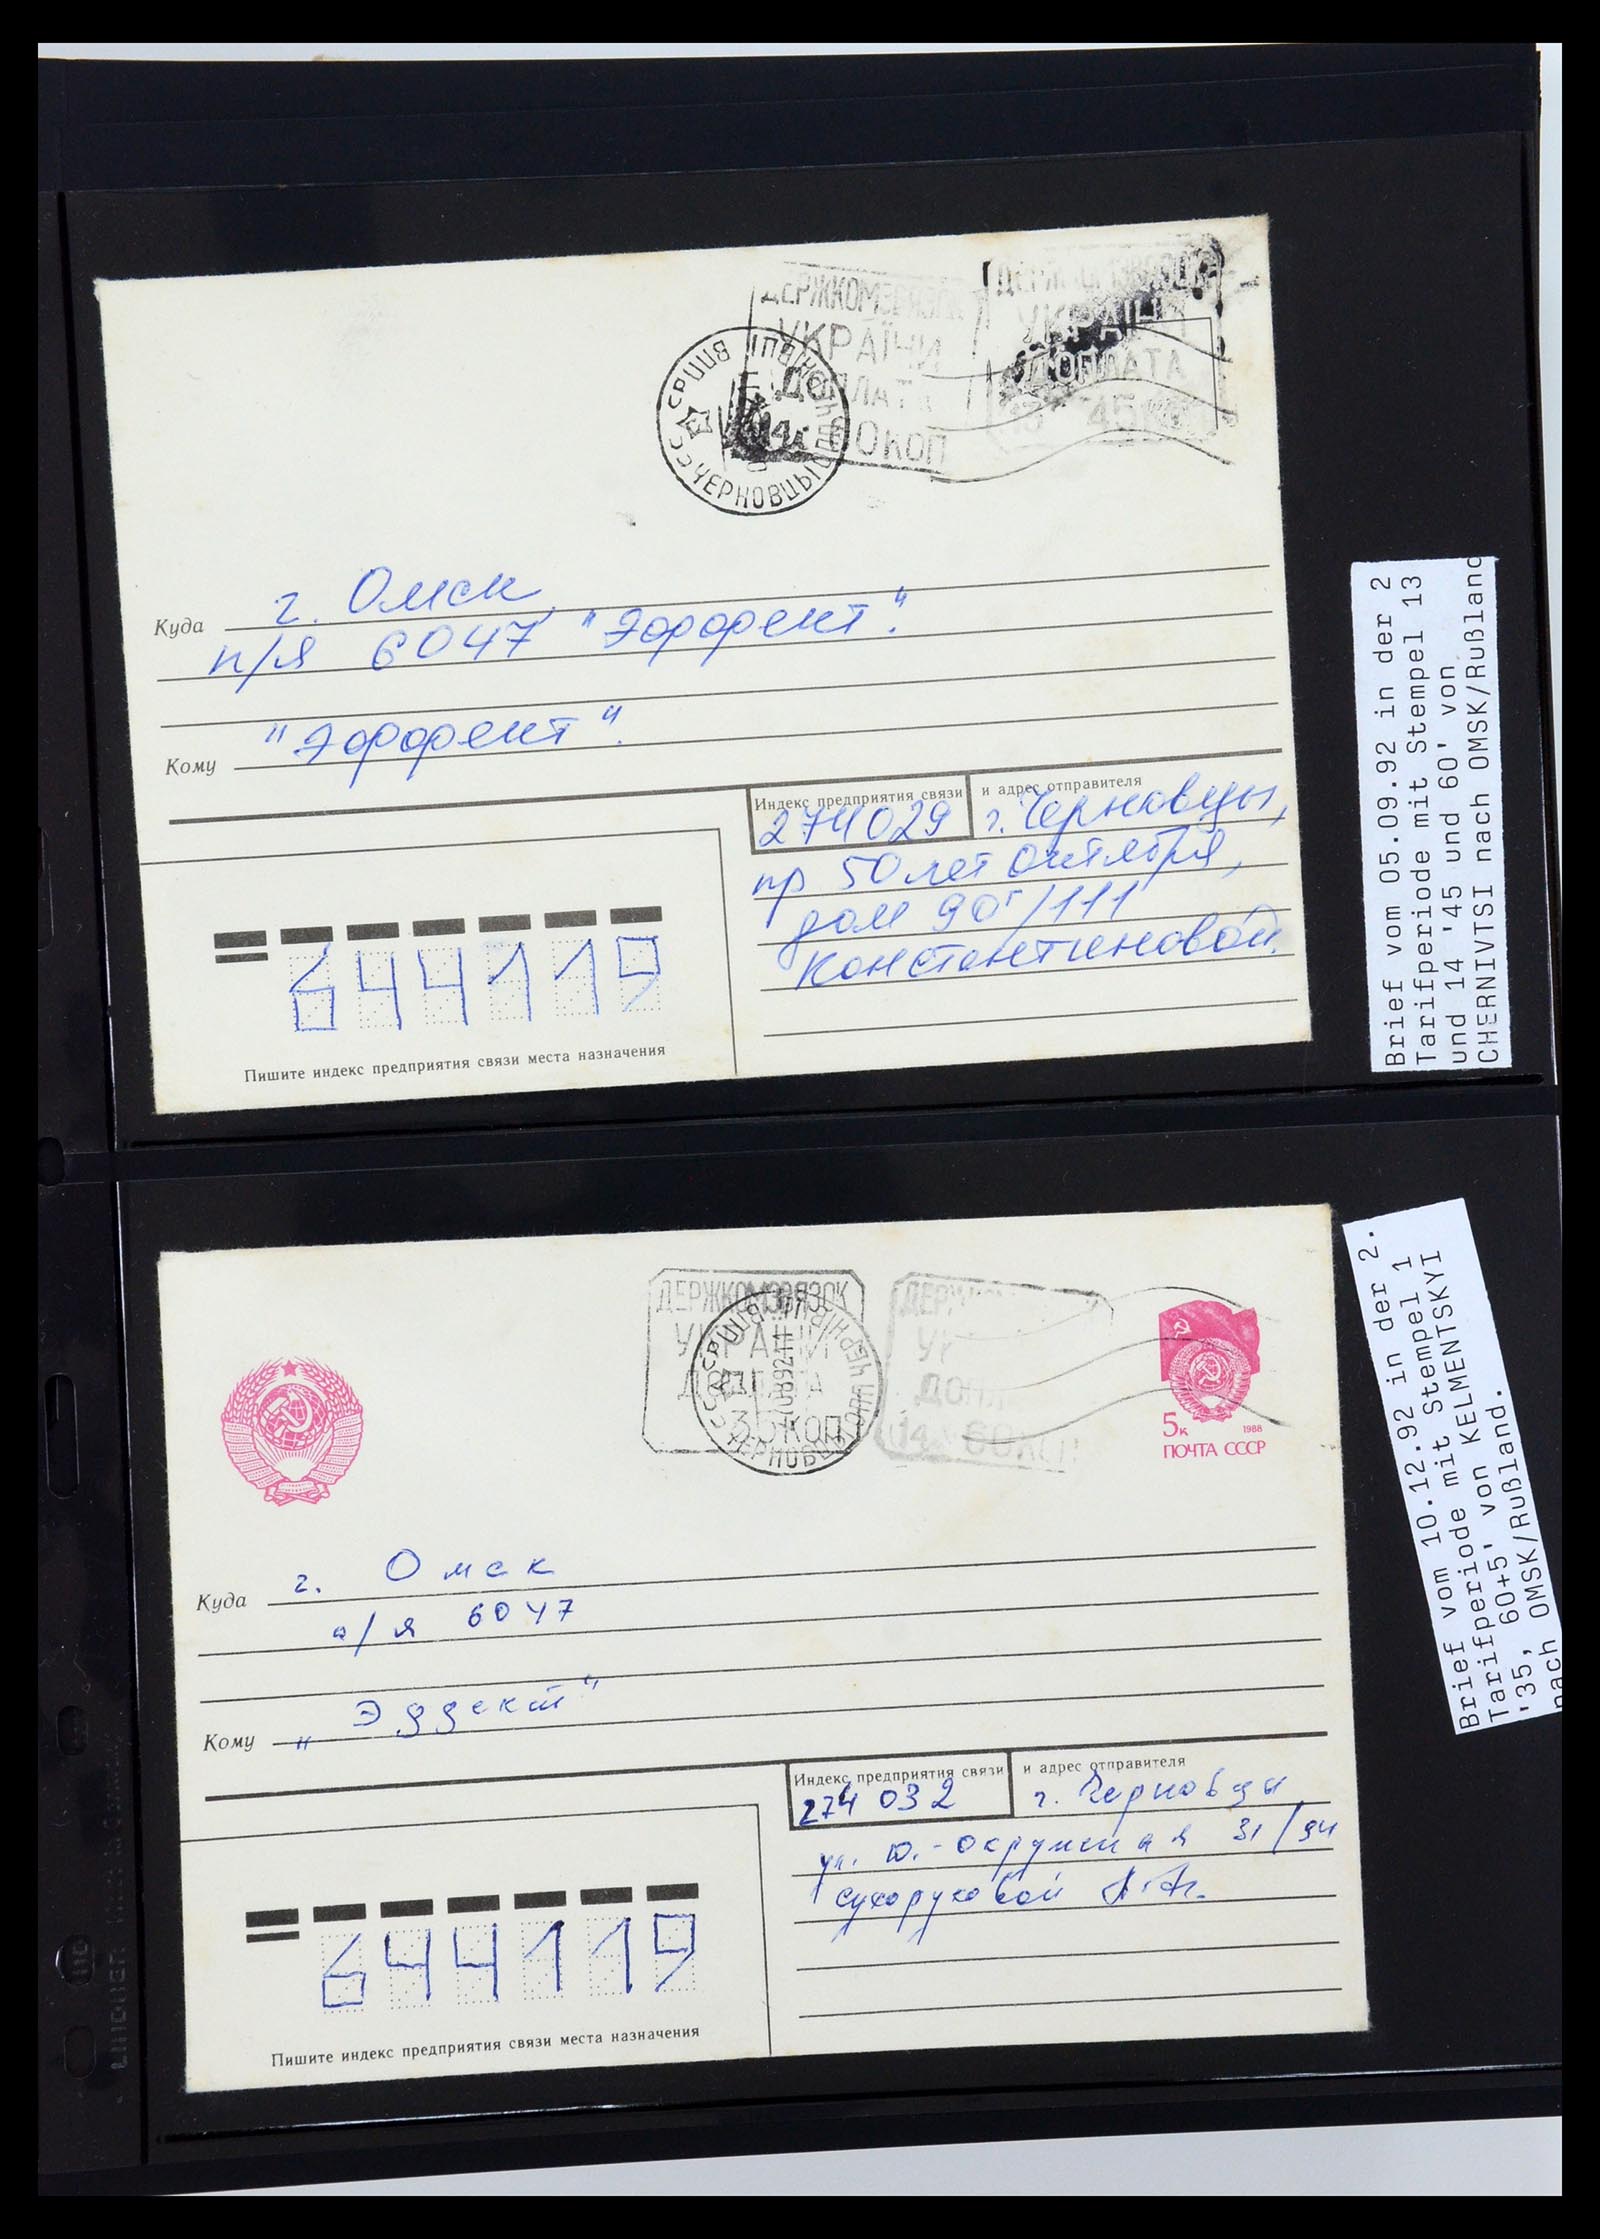 ДЕРЖКОМЗВЯЗОК
УКРАЇНИ
ДОПЛАТА
60КОП
УКРАЇНИ
ДОПЛАТА
13 45К
ЧЕРНОВЦЫ
Куда г. Омск,
п/я 6047, "Эффект".
Кому "Эффект".
Индекс предприятия связи и адрес отправителя
274029 г. Черновцы,
пр 50 лет Октября,
дом 90г/111
Константиновой.
644119
Пишите индекс предприятия связи места назначения
Brief vom 05.09.92 in der 2
Tarifperiode mit Stempel 13
und 14 '45 und 60' von
CHERNIVTSI nach OMSK/Rußland
ДЕРЖКОМЗВЯЗОК
УКРАЇНИ
ДОПЛАТА
35КОП
14 60КОП
ЧЕРНОВЦЫ
5к 1988
ПОЧТА СССР
Куда г. Омск
а/я 6047
Кому "Эффект"
Индекс предприятия связи и адрес отправителя
274 032 г. Черновцы
ул. Ю.-Окружная 31/94
Сухоруковой
644119
Пишите индекс предприятия связи места назначения
Brief vom 10.12.92 in der 2.
Tarifperiode mit Stempel 1
'35, 60+5' von KELMENTSKYI
nach OMSK/Rußland.